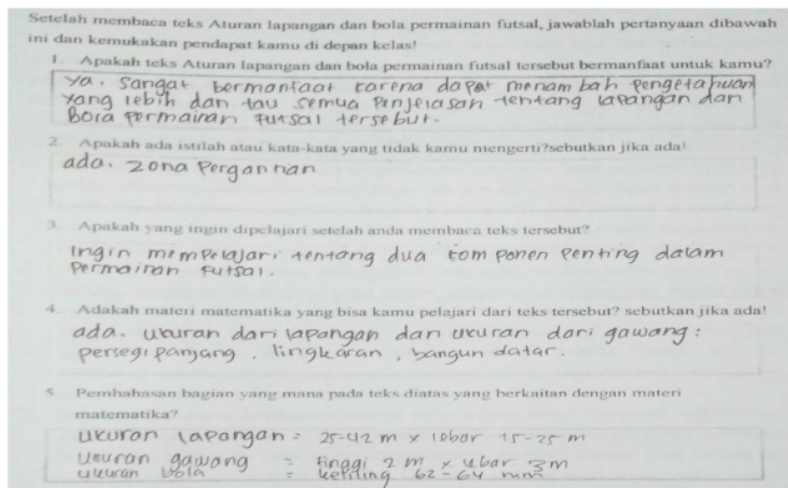 Setelah membaca teks Aturan lapangan dan bola permainan futsal, jawablah pertanyaan dibawah
ini dan kemukakan pendapat kamu di depan kelas!
1. Apakah teks Aturan lapangan dan bola permainan futsal tersebut bermanfaat untuk kamu?
ya. Sangat bermanfaat karena dapat menambah pengetahuan
yang lebih dan tau semua penjelasan tentang lapangan dan
Bola permainan futsal tersebut.
2. Apakah ada istilah atau kata-kata yang tidak kamu mengerti?sebutkan jika ada!
ada. zona pergantian
3. Apakah yang ingin dipelajari setelah anda membaca teks tersebut?
Ingin mempelajari tentang dua komponen penting dalam
permainan futsal.
4. Adakah materi matematika yang bisa kamu pelajari dari teks tersebut? sebutkan jika ada!
ada. ukuran dari lapangan dan ukuran dari gawang:
persegi panjang, lingkaran, bangun datar.
5. Pembahasan bagian yang mana pada teks diatas yang berkaitan dengan materi
matematika?
Ukuran lapangan = 25-42 m x lebar 15-25 m
Ukuran gawang = tinggi 2 m x lebar 3m
ukuran bola = keliling 62-64 mm